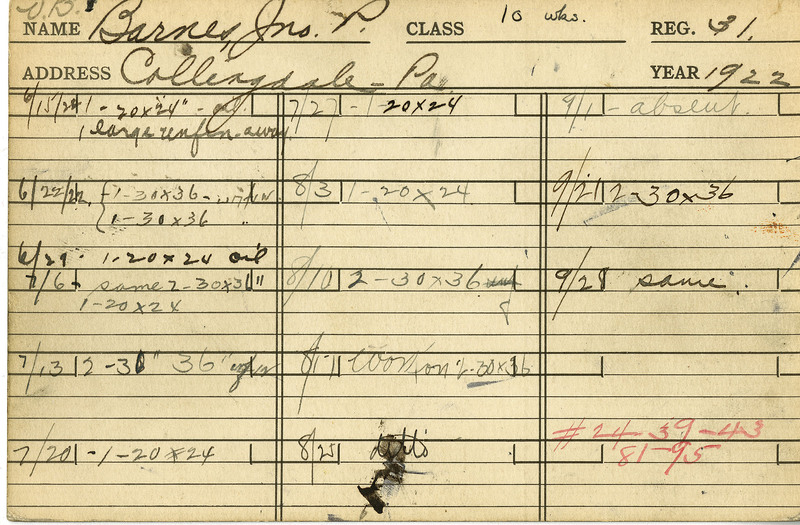 NAME Barnes, Jno. P. CLASS 10 wks. REG. 31.
ADDRESS Collingdale - Pa. YEAR 1922
6/15/22 1 - 20x24" - oil
1 large unfin - away
6/22/22 1-30x36 -
1-30x36 "
6/29 - 1-20x24 oil
7/6 + same 2-30x36"
1-20x24
7/13 2-30" 36"
7/20 -1-20x24
7/27 -1-20x24
8/3 1-20x24
8/10 2-30x36
8/17 Work on 2-30x36
8/25 ditto
9/1 - absent.
9/21 2-30x36
9/28 same.
# 24-39-43
81-95